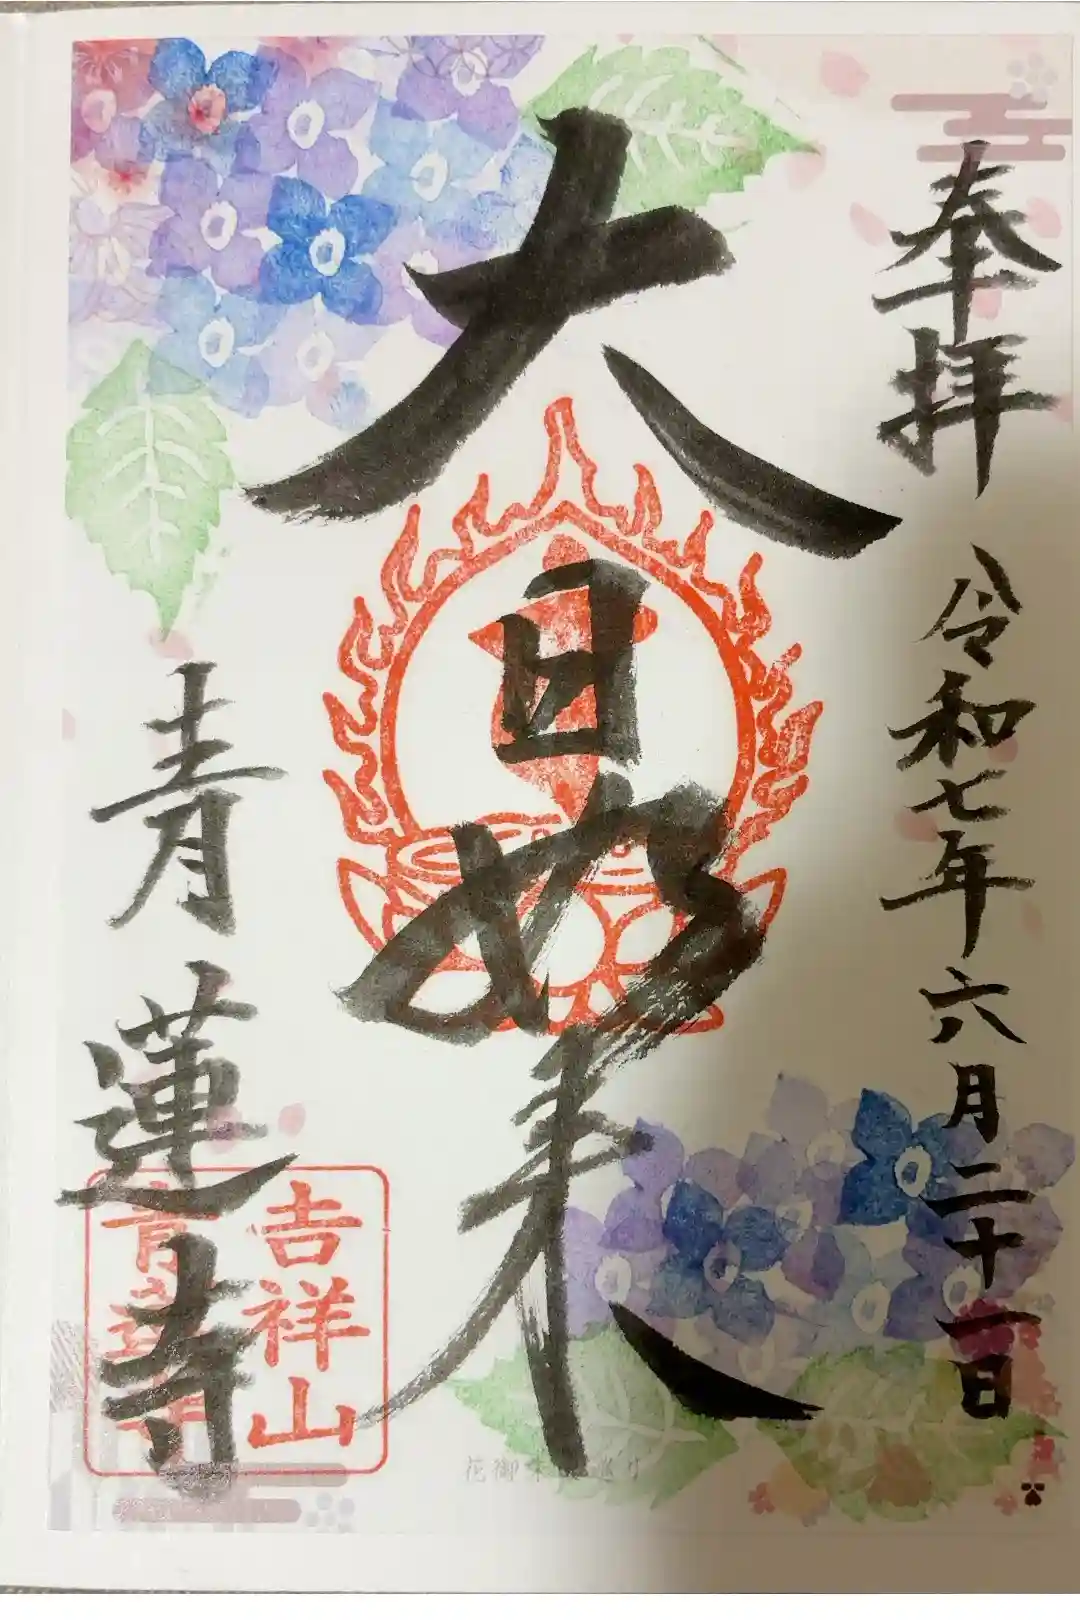 奉拝
令和七年六月二十一日
大日如来
青蓮寺
吉祥山
青蓮寺